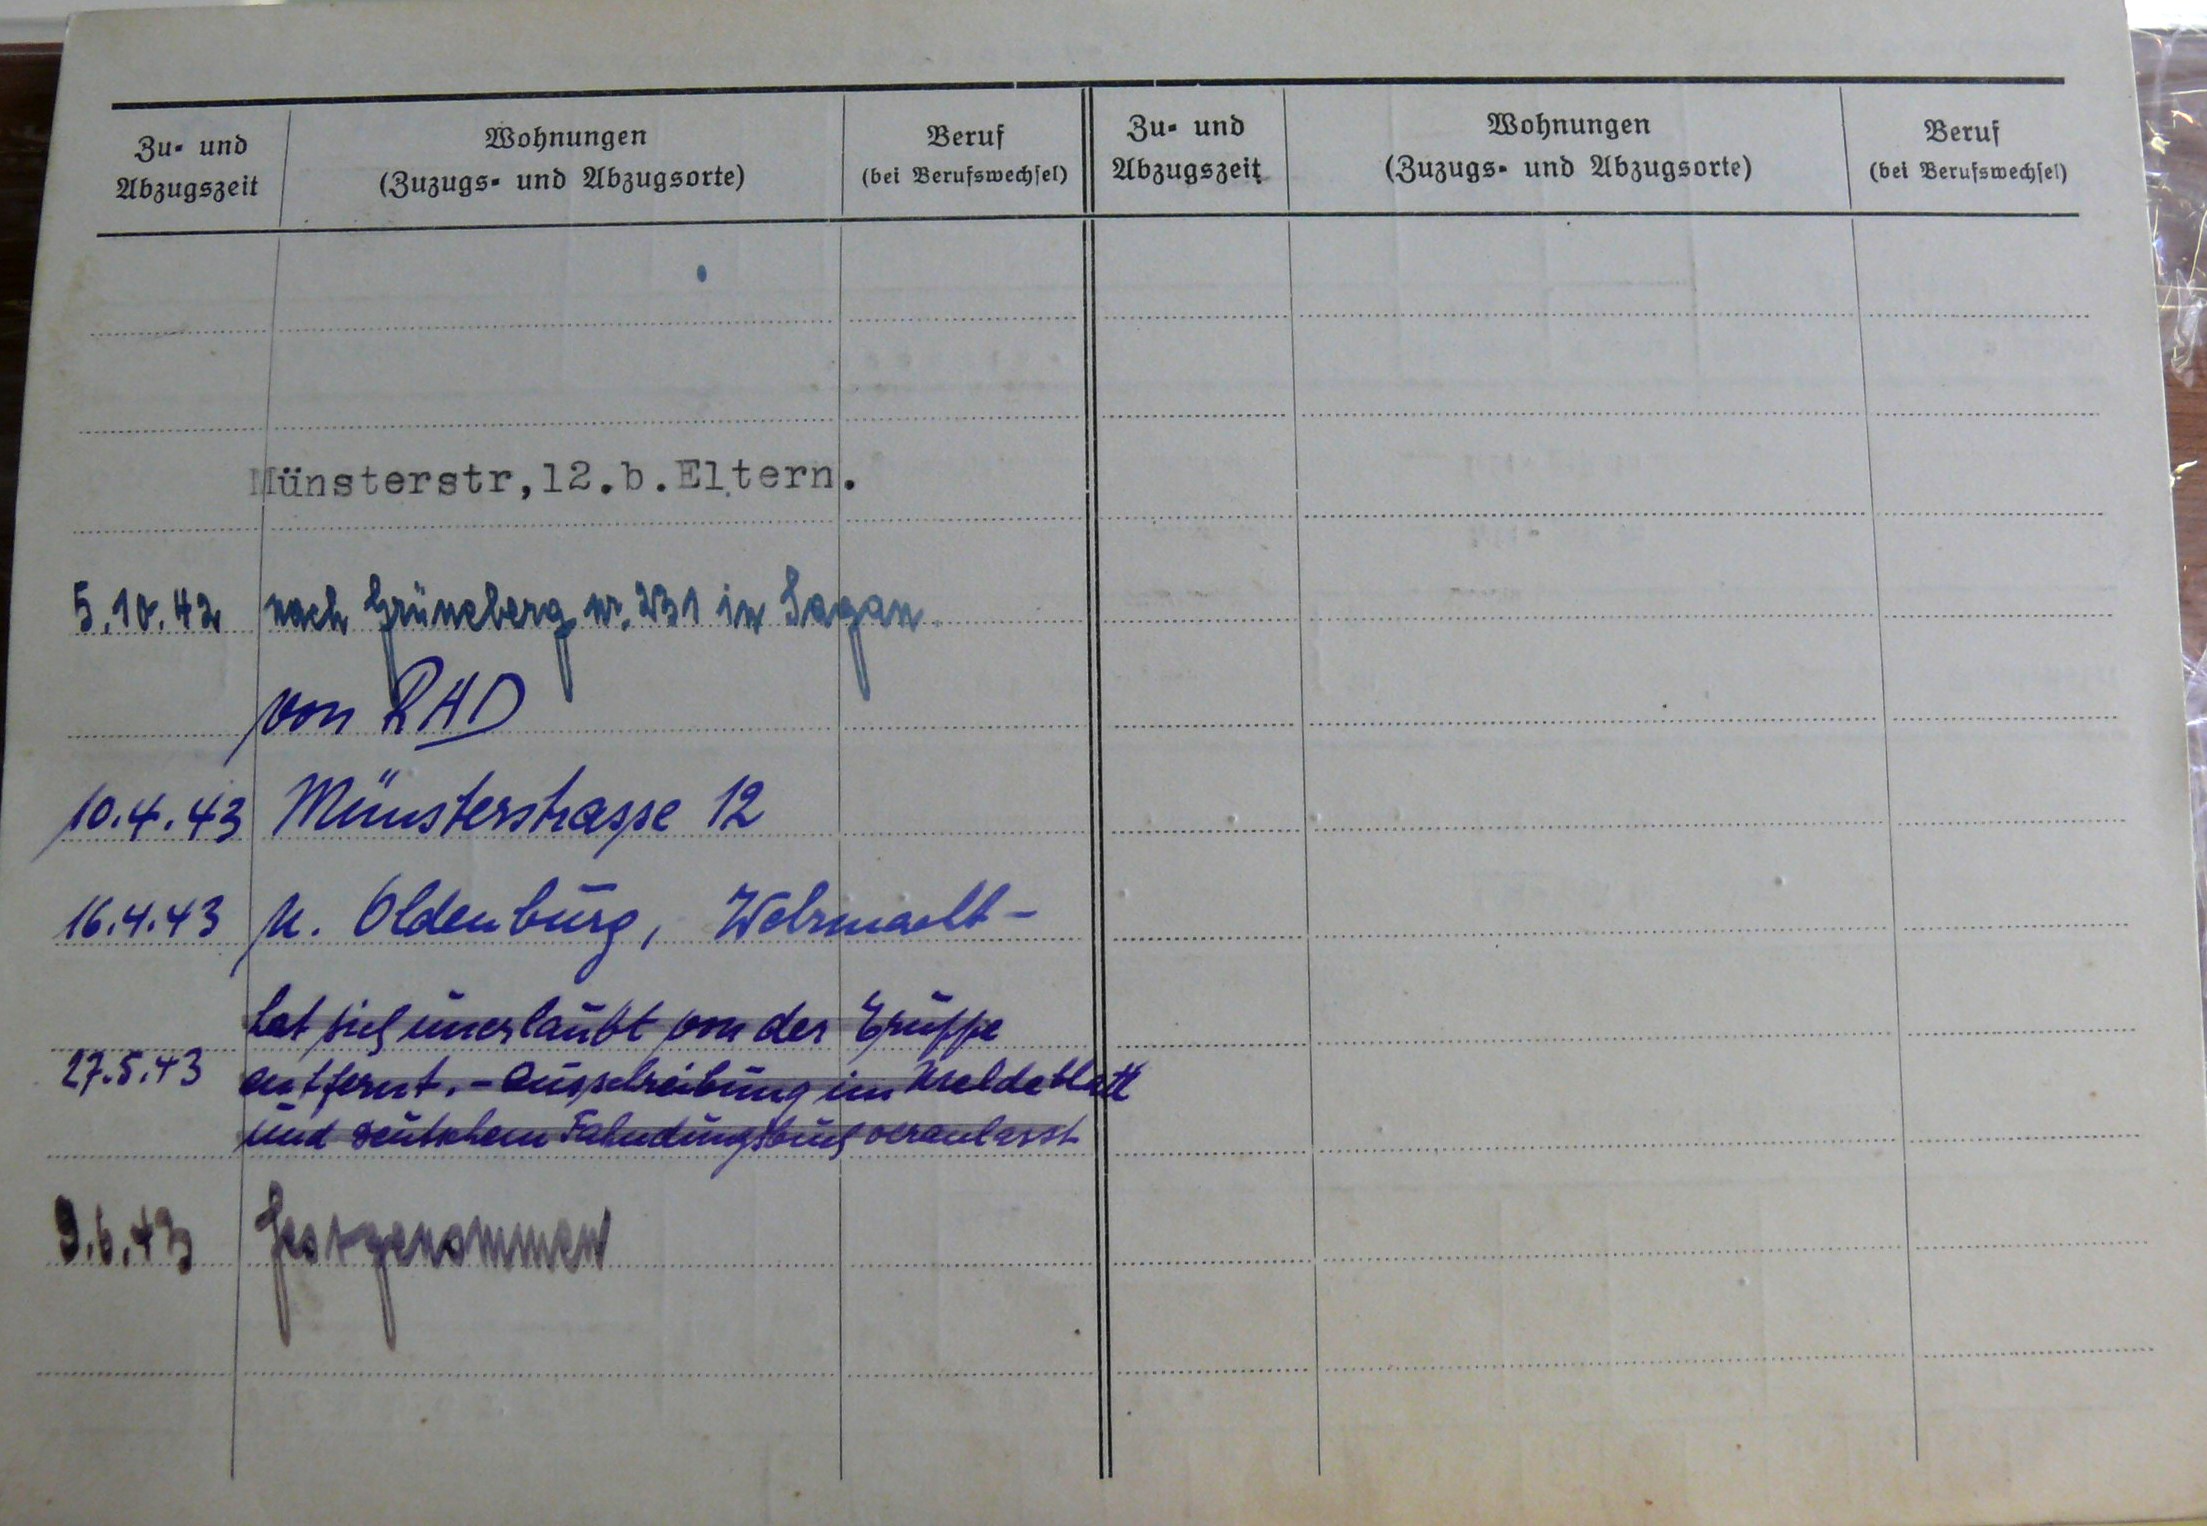 Zu- und Abzugszeit
Wohnungen
(Zuzugs- und Abzugsorte)
Beruf
(bei Berufswechsel)
Zu- und Abzugszeit
Wohnungen
(Zuzugs- und Abzugsorte)
Beruf
(bei Berufswechsel)
Münsterstr,12.b.Eltern.
5.10.42 nach Grüneberg nr. 231 in Sagan.
von RAD
10.4.43 Münsterstrasse 12
16.4.43 n. Oldenburg, Wehrmacht -
hat sich unerlaubt von der Truppe
27.5.43 entfernt. - Ausschreibung im Meldeblatt
und deutschem Fahndungsbuch veranlasst
9.6.43 festgenommen